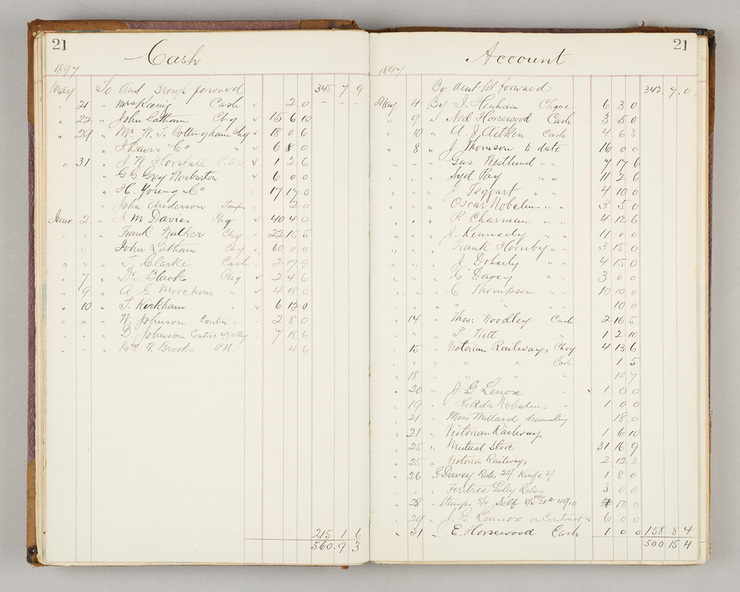 21
Cash
1897
May To Amt Brought forward 345 7 9
" 21 " Mrs Koenig Cash 2 0
" 22 " John Latham Chq 15 6 10
" 29 " Mr W. T. Cottingham Chq 18 0 6
" " " J Davis & Co 6 8 0
" 31 " J. W. Horsfall 1 2 6
" " " G G Grey Warburton 6 0 0
" " " H. Young & Co 17 17 0
" " " John Anderson Stamps 2 0
June 2 " J M Davies Chq 40 4 0
" " " Frank Walker Chq 22 15 5
" " " John Latham Chq 60 0 0
" " " T. Clarke Cash 2 17 9
" 7 " Dr Black Chq 2 4 6
" 9 " A G 4 18 0
" 10 " T. Kirkham " 6 12 0
" " " W. Johnson 2 8 0
" " " D Johnson 7 18 6
" " " W. Brooks P.N. 4 6
215 1 6
560 9 3
21
Account
1897
By Amt Bt forward 342 7 0
May 4 By 6 3 0
" 9 " Noel Horsewood Cash 3 5 0
" 10 " A J Aitken Cash 4 6 3
" 8 " J Thomson to date 16 0 0
" " " Gus Westlund " " 7 17 6
" " " Syd Pay " " 11 2 6
" " " J Teggart " " 4 10 0
" " " Oscar Nobelius " " 3 5 0
" " " R. Charman " " 4 12 6
" " " J. Kennedy " 11 0 0
" " " Frank Hornby " " 3 15 0
" " " J Doherty " " 4 15 0
" " " C Davey " " 3 0 0
" " " C Thompson " " 10 10 0
" " " " " 10 0
" 14 " Thos. Woodley Cash 2 16 5
" " " S. Witt " 1 2 10
" 15 " Victorian Railways Chq 4 13 6
" " " " " Cash 1 5
" 18 " " " " 10 7
" 20 " J G Lenox " 1 0 0
" 19 " Hilda Nobelius " 1 0 0
" 21 " Victorian Railways 1 6 10
" 25 " Mutual Store 31 16 9
" 25 " Victoria Railways 2 12 3
" 26 G Davey 1 8 0
" " Ferntree Gully Rates 3 0 0
" 28 " Stamps
" 29 " J. G. Lennox on Contract 6 0 0
" 31 " E. Horsewood Cash 1 0 0 158 8 4
500 15 4